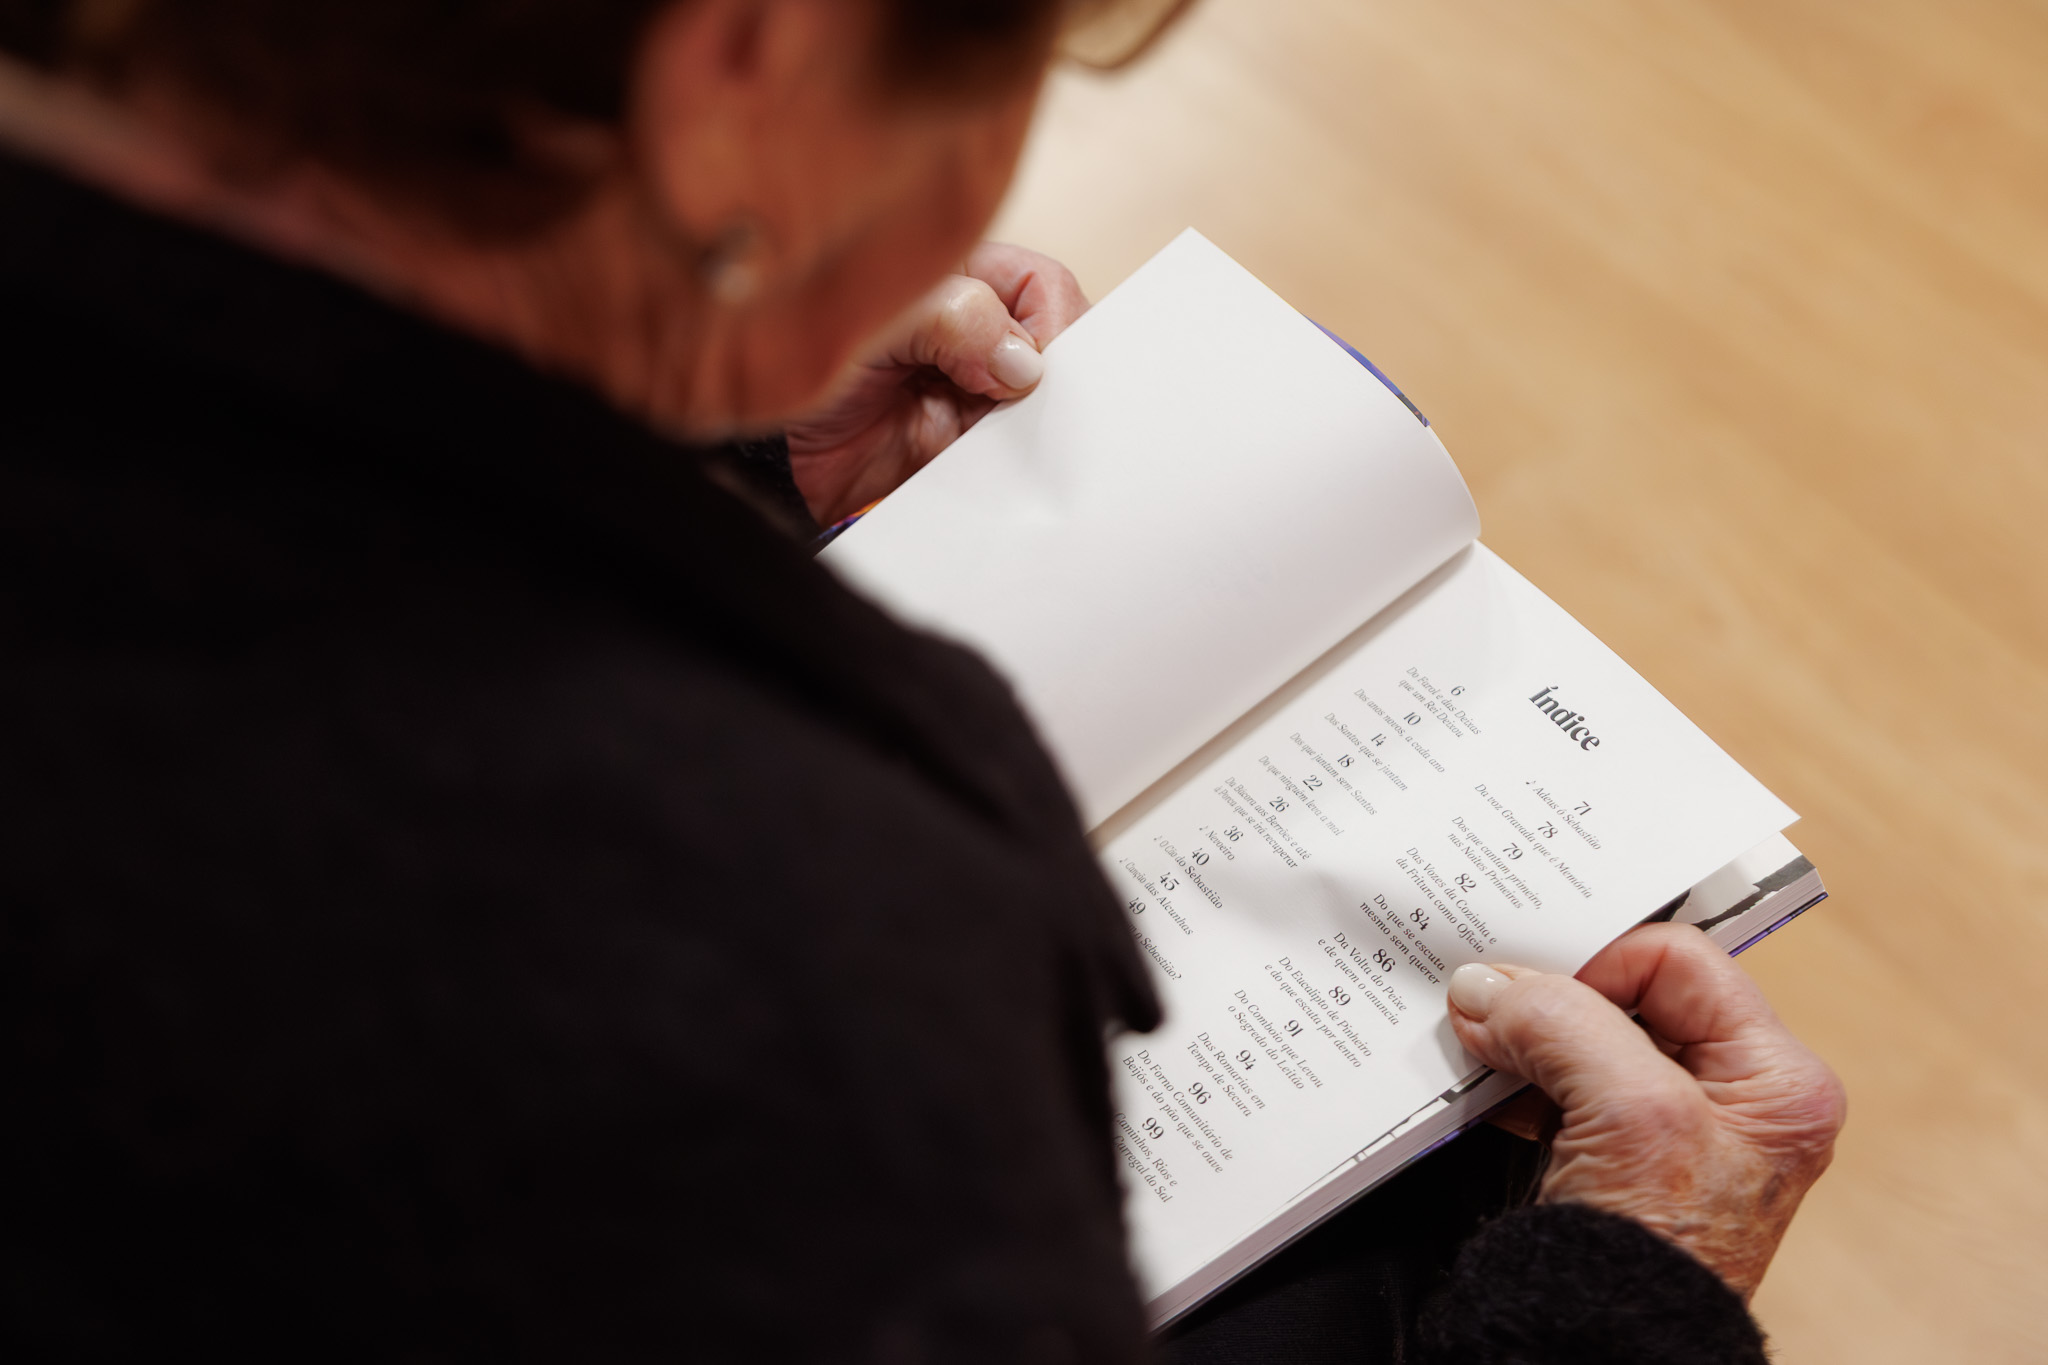 Índice
6
Do Farol e das Deixas
que um Rei Deixou
10
Dos anos novos, a cada ano
14
Dos Santos que se juntam
18
Dos que juntam sem Santos
22
Do que ninguém leva a mal
26
Da Bácora aos Berrões e até
à Porca que se irá recuperar
36
♩ Nevoeiro
40
♩ O Cão do Sebastião
45
♩ Canção das Alcunhas
49
o Sebastião?
71
♩ Adeus ó Sebastião
78
Da voz Gravada que é Memória
79
Dos que cantam primeiro,
nas Noites Primeiras
82
Das Vozes da Cozinha e
da Fritura como Ofício
84
Do que se escuta
mesmo sem querer
86
Da Volta do Peixe
e de quem o anuncia
89
Do Eucalipto de Pinheiro
e do que escuta por dentro
91
Do Comboio que Levou
o Segredo do Leitão
94
Das Romarias em
Tempo de Secura
96
Do Forno Comunitário de
Beijós e do pão que se ouve
99
Caminhos, Rios e
Curregal do Sal